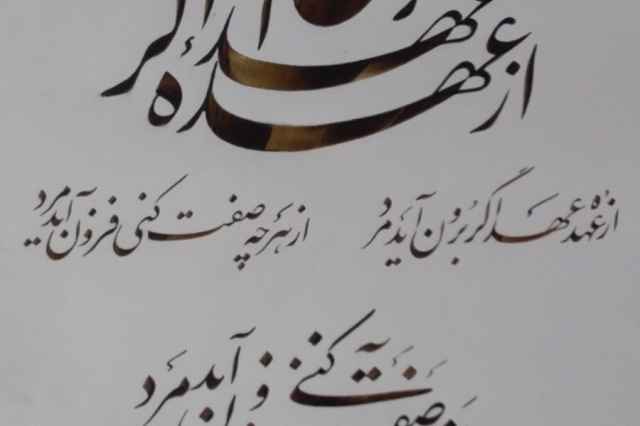 عهد اگر
از عهده
از عهده عهد اگر برون آید مرد
از هرچه صفت کنی فزون آید مرد
صفت کنی فزون آید مرد